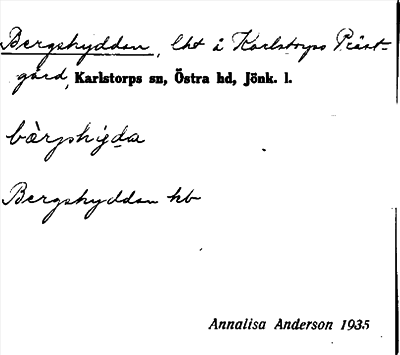 Bergshyddan, lht å Karlstorps Präst-
gård, Karlstorps sn, Östra hd, Jönk. l.
bàrgshyda
Bergshyddan hb
Annalisa Anderson 1935